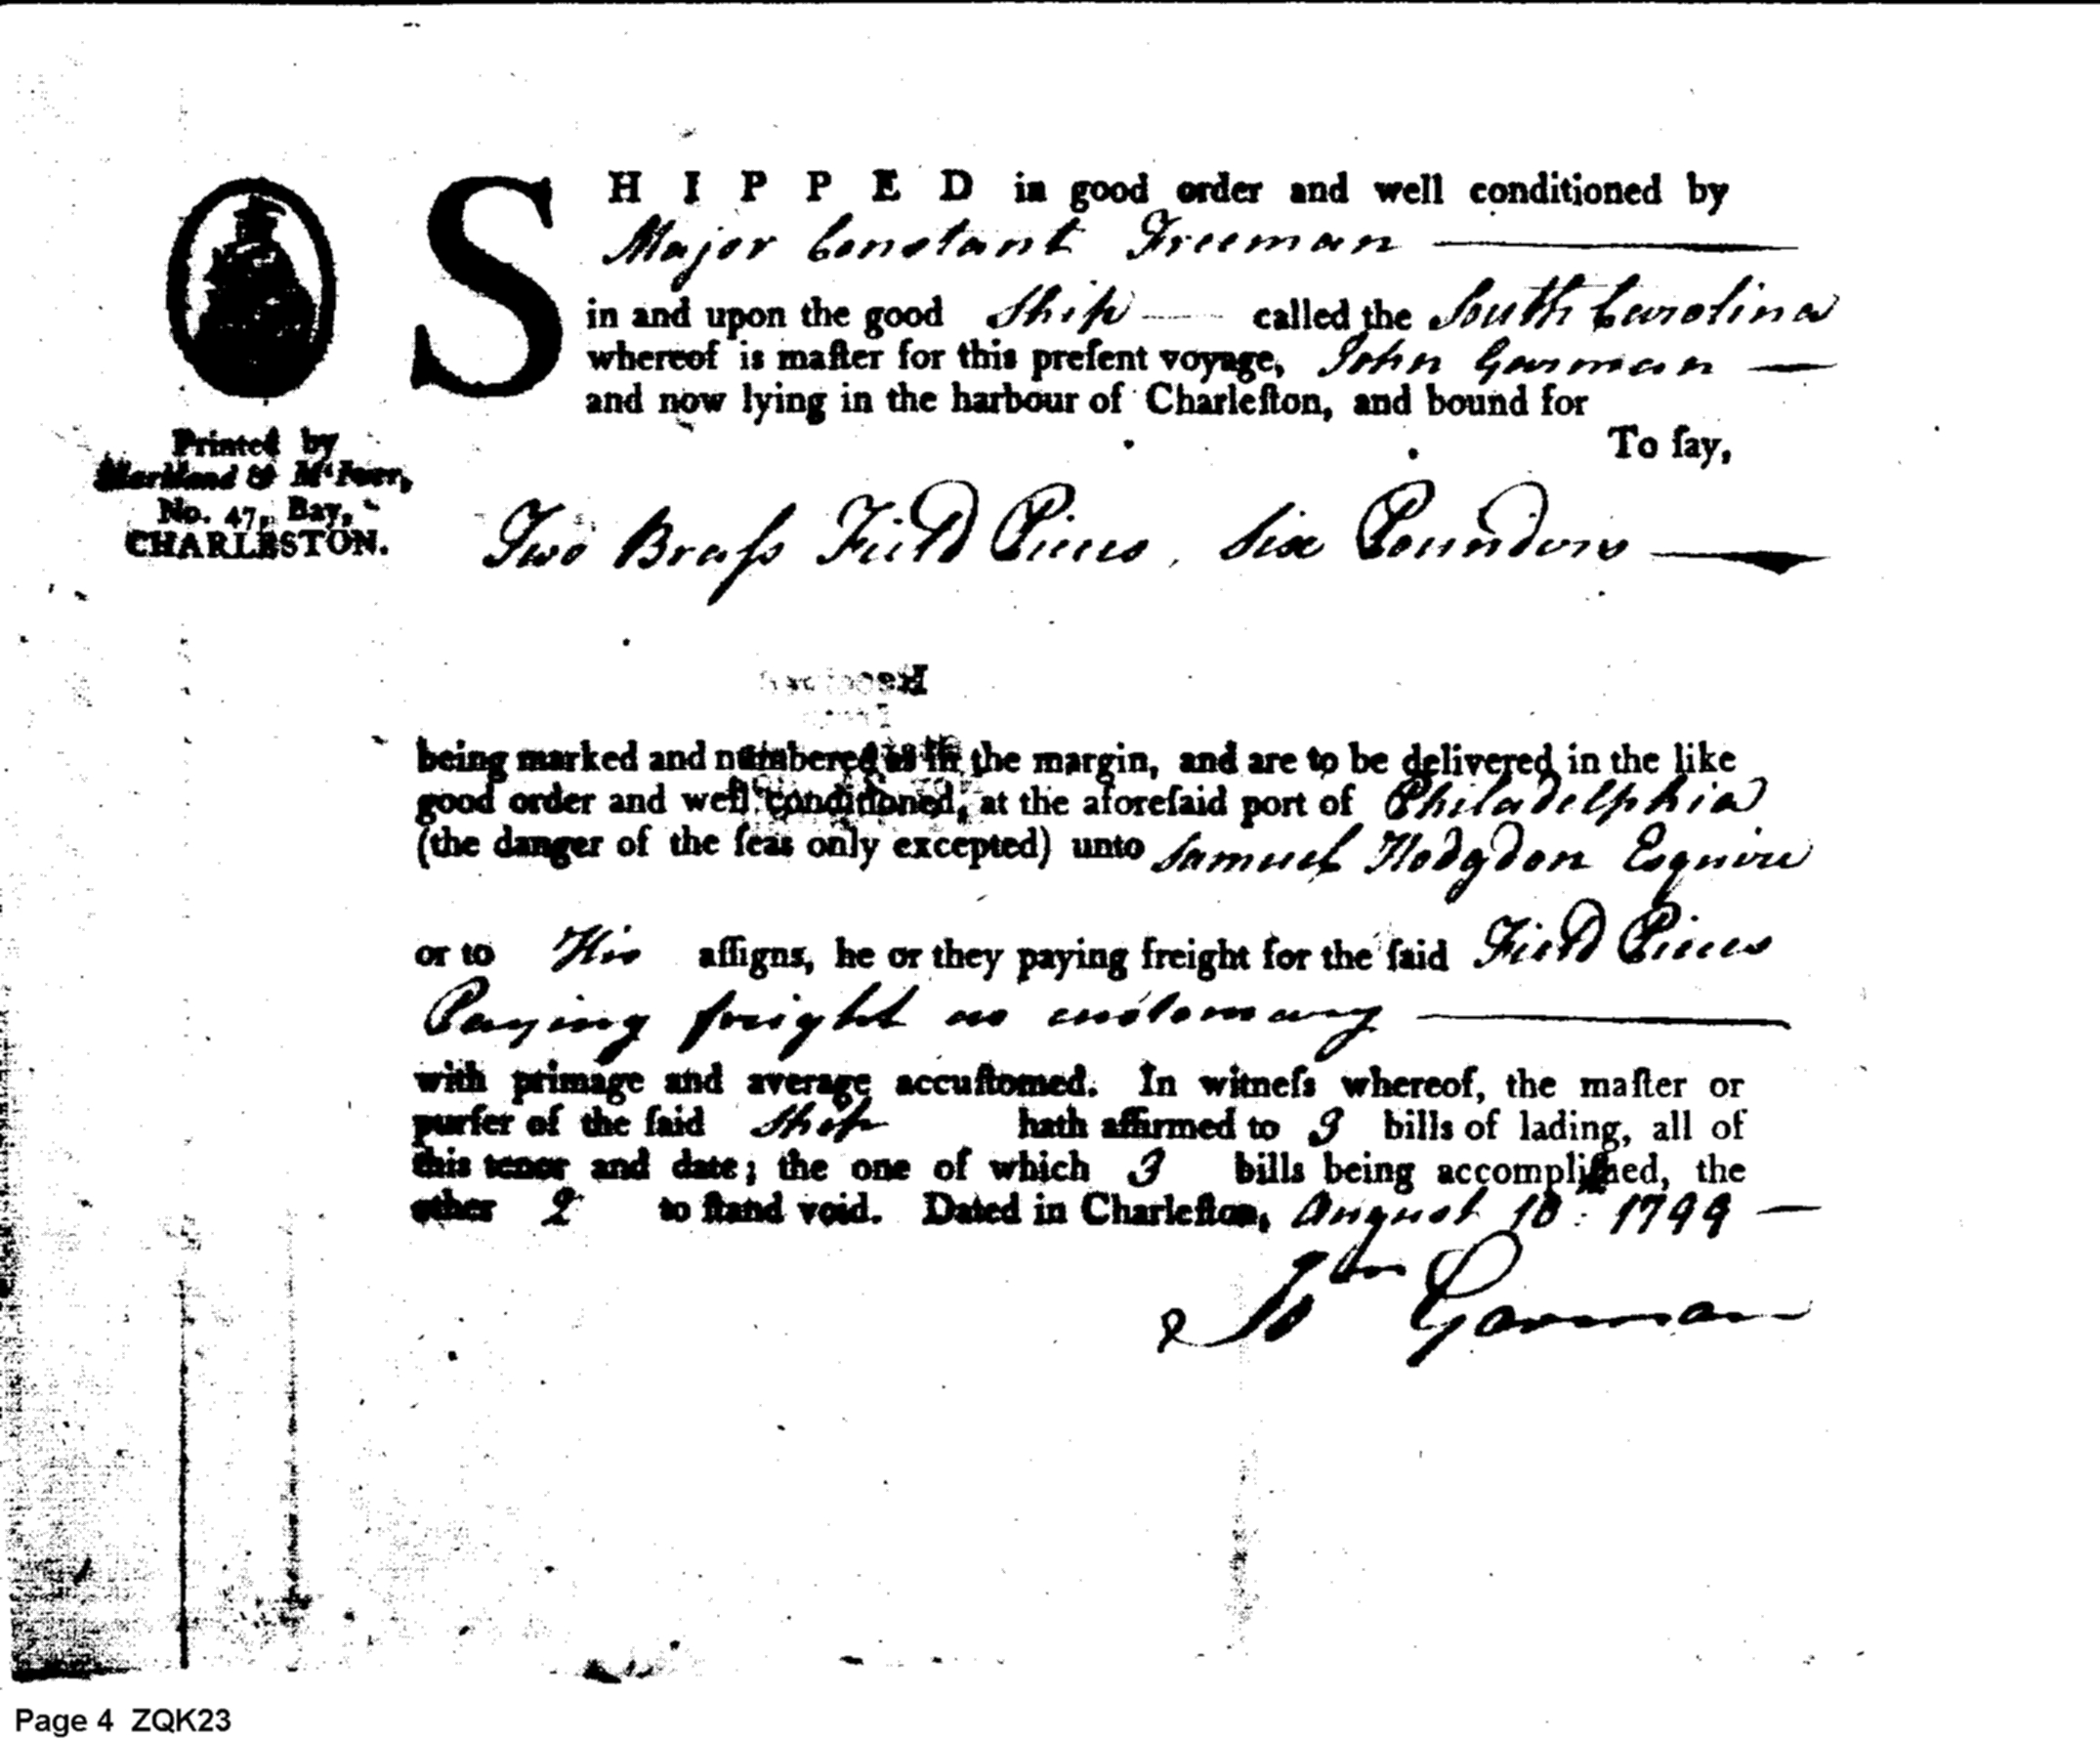 SHIPPED in good order and well conditioned by
Major Constant Freeman
in and upon the good Ship called the South Carolina
whereof is maſter for this preſent voyage, John Garman
and now lying in the harbour of Charleſton, and bound for
To ſay,
Printed by
Markland & McIver,
No. 47, Bay,
CHARLESTON.
Two Braſs Field Pieces, Six Pounders
being marked and numbered as in the margin, and are to be delivered in the like
good order and well conditioned, at the aforeſaid port of Philadelphia
(the danger of the ſeas only excepted) unto Samuel Hodgdon Esquire
or to His aſſigns, he or they paying freight for the ſaid Field Pieces
Paying freight as customary
with primage and average accuſtomed. In witneſs whereof, the maſter or
purſer of the ſaid Ship hath affirmed to 3 bills of lading, all of
this tenor and date; the one of which 3 bills being accompliſhed, the
other 2 to ſtand void. Dated in Charleſton, August 10: 1799
Jno Garman
Page 4 ZQK23